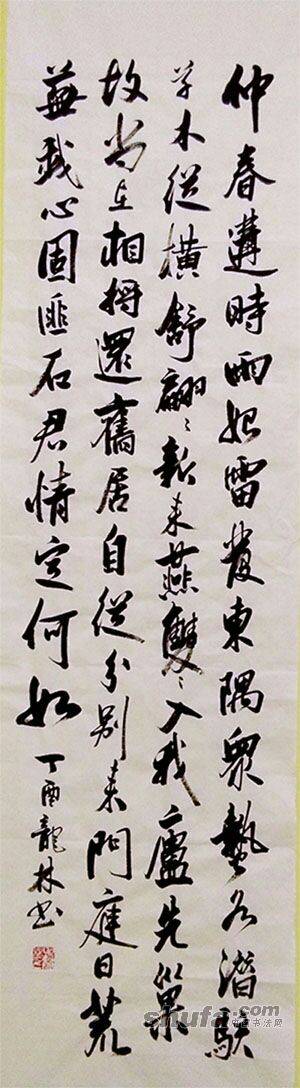 仲春遘時雨始雷發東隅眾蟄各潛駭
草木從橫舒翩々新来燕雙々入我廬先巢
故尚在相將還舊居自從分別来門庭日荒
蕪我心固匪石君情定何如
丁酉龍林書
shufa.com
中国书法网